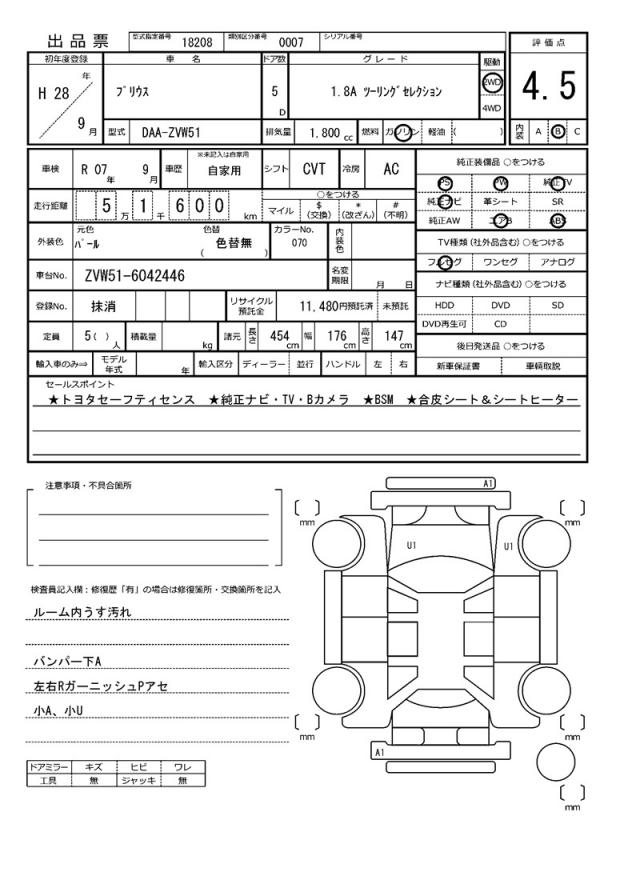 出品票 型式指定番号 18208 類別区分番号 0007 シリアル番号
評価点
4.5
初年度登録 車名 ドア数 グレード 駆動
H 28 年 9 月 プリウス 5 D 1.8A ツーリングセレクション 2WD 4WD
型式 DAA-ZVW51 排気量 1.800 cc 燃料 ガソリン 軽油 ( )
内装 A B C
車検 R 07 年 9 月 車歴 ※未記入は自家用 自家用 シフト CVT 冷房 AC
走行距離 5 万 1 千 6 0 0 km ○をつける
マイル $ (交換) * (改ざん) # (不明)
外装色 元色 パール 色替 ( 色替無 ) カラーNo. 070 内装色
車台No. ZVW51-6042446 名変期限 月 日
登録No. 抹消 リサイクル預託金 11,480円預託済 未預託
定員 5( ) 人 積載量 kg 諸元 長さ 454 cm 幅 176 cm 高さ 147 cm
輸入車のみ⇒ モデル年式 年 輸入区分 ディーラー 並行 ハンドル 左 右
純正装備品 ○をつける
PS PW 純正TV
純正ナビ 革シート SR
純正AW エアB ABS
TV種類 (社外品含む) ○をつける
フルセグ ワンセグ アナログ
ナビ種類 (社外品含む) ○をつける
HDD DVD SD
DVD再生可 CD
後日発送品 ○をつける
新車保証書 車輌取説
セールスポイント
★トヨタセーフティセンス ★純正ナビ・TV・Bカメラ ★BSM ★合皮シート＆シートヒーター
注意事項・不具合箇所
検査員記入欄：修復歴「有」の場合は修復箇所・交換箇所を記入
ルーム内うす汚れ
バンパー下A
左右RガーニッシュPアセ
小A、小U
ドアミラー キズ ヒビ ワレ
工具 無 ジャッキ 無
A1
[ ] mm [ ] mm
U1 U1
[ ] mm [ ] mm
A1
[ ] mm